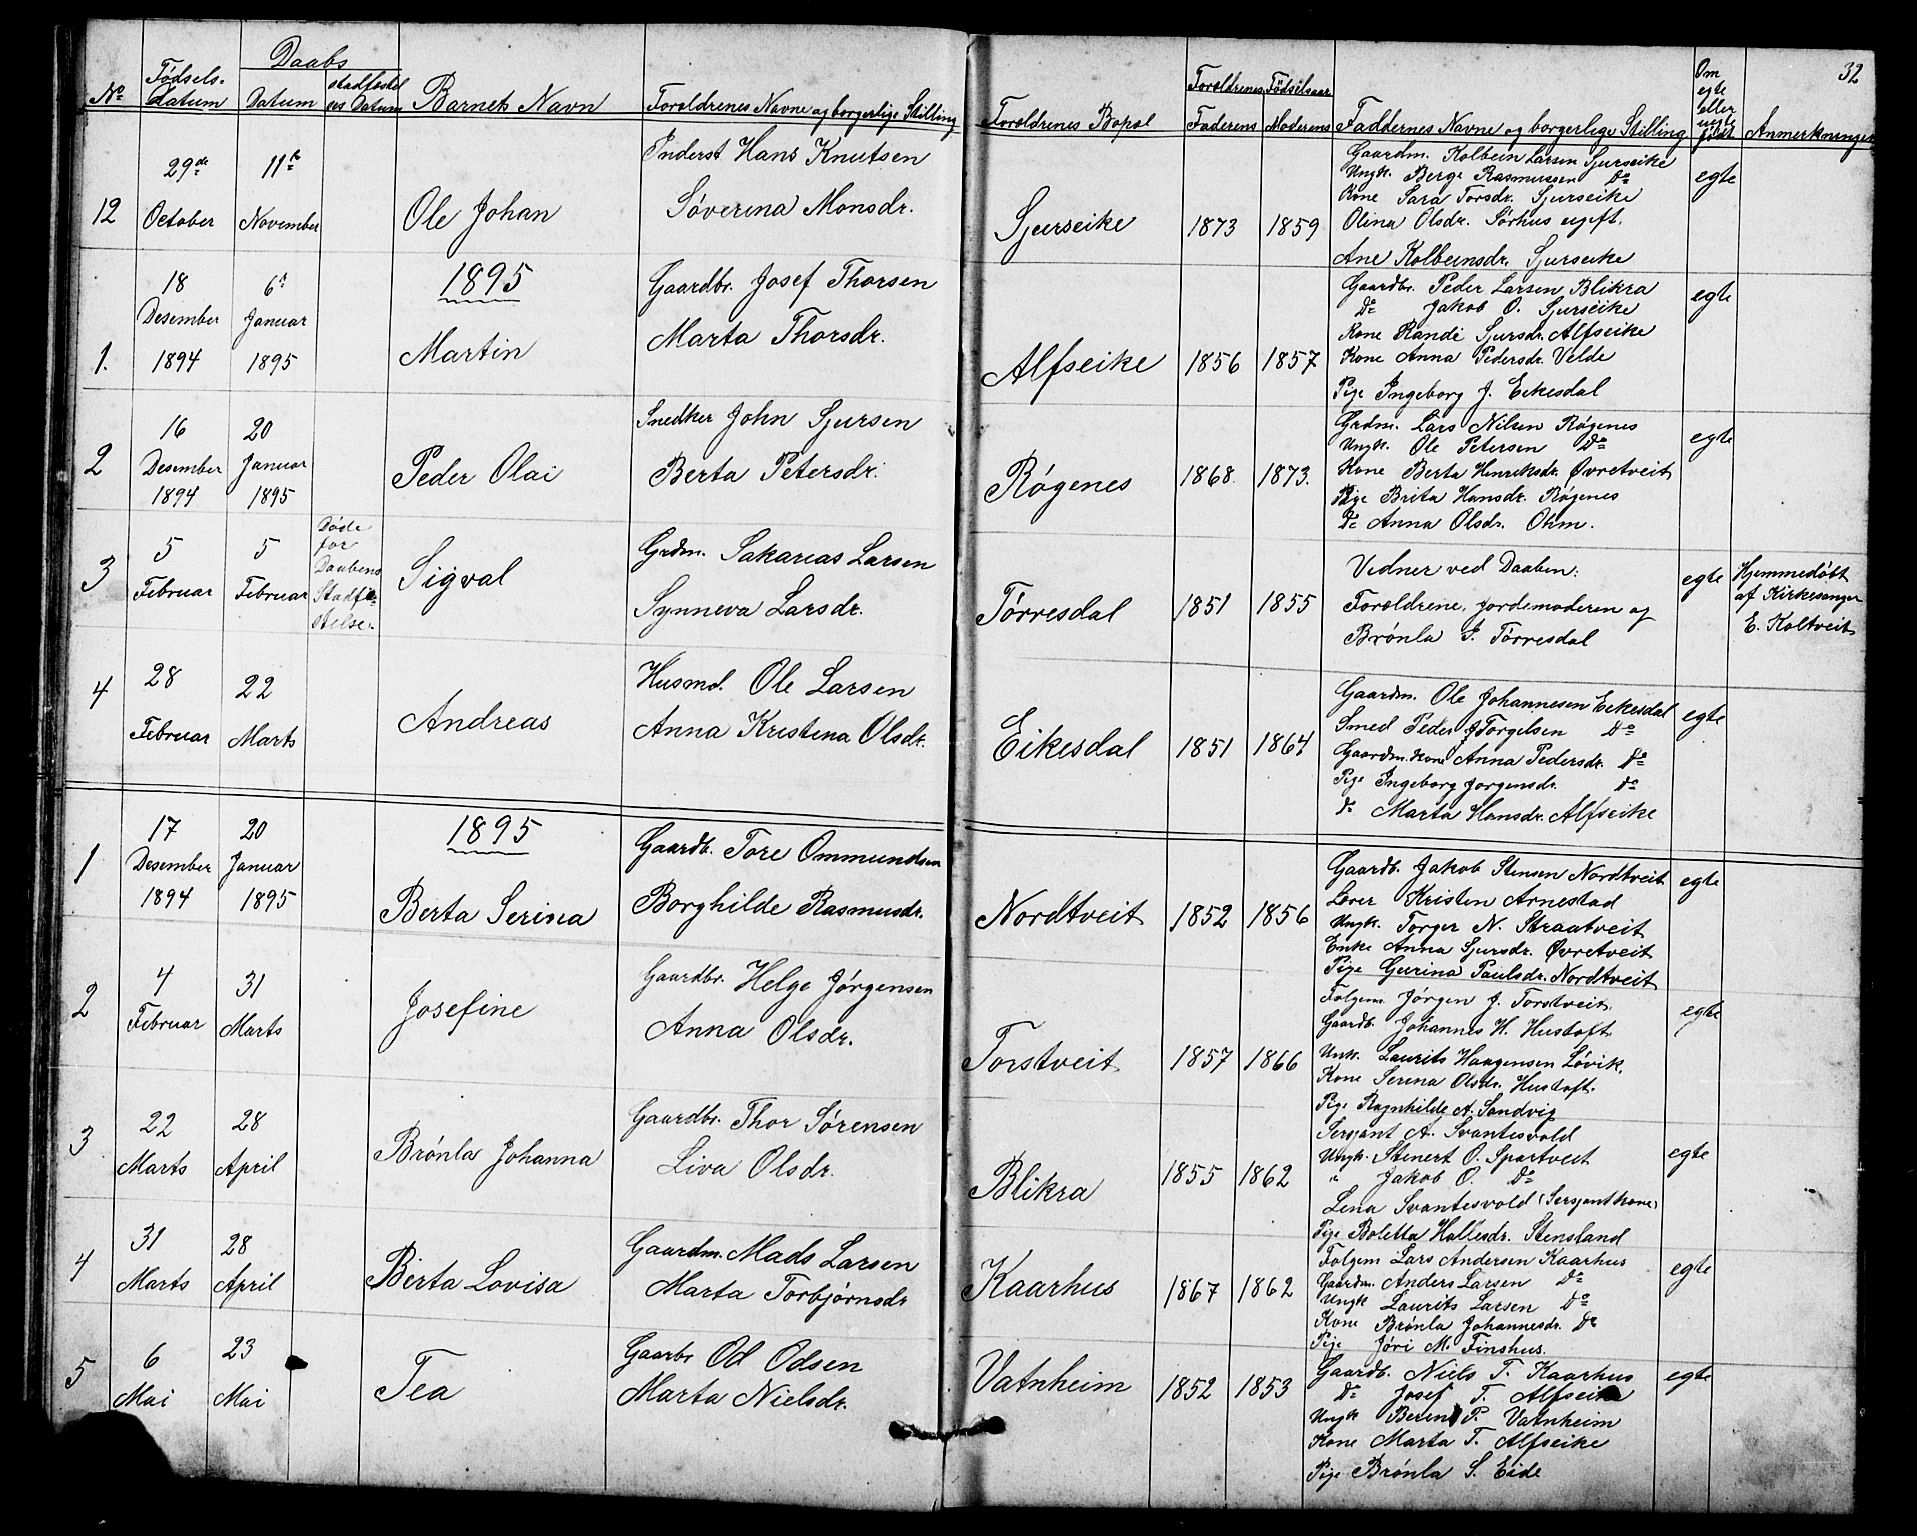 32
Nº
Fødsels-
Datum
Daabs
Datum
stadfæstel
ses Datum
Barnets Navn
Forældrenes Navne og borgerlige Stilling
Forældrenes Bopæl
Forældrenes Fødselsaar
Faderens Moderens
Faddernes Navne og borgerlige Stilling
Om
egte
eller
uegte
født
Anmerkninger
12
29de
October
11te
November
Ole Johan
Inderst Hans Knutsen
Søverina Monsdr.
Sjurseike
1873
1859
Gaardm. Kolbein Larsen Sjurseike
Ungk. Berge Rasmussen Do
Kone Sara Torsdr. Sjurseike
Olina Olsdr. Sørhus ugift.
Ane Kolbeinsdr. Sjurseike
egte
1895
1.
18
Desember
1894
6
Januar
1895
Martin
Gaardbr. Josef Thorsen
Marta Thorsdr.
Alfseike
1856
1857
Gaardbr. Peder Larsen Blikra
Do Jakob O. Sjurseike
Kone Randi Sjursdr. Alfseike
Kone Anna Pedersdr. Velde
Pige Ingeborg J. Eikesdal
egte
2
16
Desember
1894
20
Januar
1895
Peder Olai
Snedker John Sjursen
Berta Petersdr.
Røgenes
1868.
1873.
Grdm. Lars Nilsen Røgenes
Ungk. Ole Petersen Do
Kone Berta Henriksdr. Øvretveit
Pige Brita Hansdr. Røgenes
Do Anna Olsdr. Ohm.
egte
3
5
Februar
5
Februar
Døde
før
Daabens
Stadfæ-
stelse.
Sigval
Grdm. Sakarias Larsen
Synneva Larsdr.
Tørresdal
1851
1855
Vidner ved Daaben:
Forældrene, Jordemoderen og
Brønla I. Tørresdal
egte
Hjemmedøbt
af Kirkesanger
E. Koltveit
4
28
Februar
22
Marts
Andreas
Husmd. Ole Larsen
Anna Kristina Olsdr.
Eikesdal
1851
1864
Gaardm. Ole Johannesen Eikesdal
Smed Peder J Torgelsen Do
Gaardm. kone Anna Pedersdr. Do
Pige Ingeborg Jørgensdr. Do
do Marta Hansdr. Alfseike
egte
1895
1
17
Desember
1894
20
Januar
1895
Berta Serina
Gaardb. Tore Ommundsen
Borghilde Rasmusdr.
Nordtveit
1852
1856
Gaardb. Jakob Stensen Nordtveit
Lærer Kristen Arnestad
Ungk. Torger N. Straatveit
Enke Anna Sjursdr. Øvretveit
Pige Gurina Paulsdr. Nordtveit
egte
2
4
Februar
31
Marts
Josefine
Gaardbr. Helge Jørgensen
Anna Olsdr.
Torstveit
1857
1866
Folgem. Jørgen J. Torstveit
Gaardb. Johannes H. Hustoft
Ungk. Laurits Haagensen Løvik.
Kone Serina Olsdr. Hustoft.
Pige Ragnhilde A. Sandvig
egte
3
22
Marts
28
April
Brønla Johanna
Gaardbr. Thor Sørensen
Liva Olsdr.
Blikra
1855
1862
Sersjant A. Svantesvold
Ungk. Steinert O. Spartveit
" Jakob O. Do
Lena Svantesvold (Sersjantkone)
Pige Boletta Hallesdr. Stensland
egte
4
31
Marts
28
April
Berta Lovisa
Gaardm. Mads Larsen
Marta Torbjørnsdr
Kaarhus
1867
1862
Folgem Lars Andersen Kaarhus
Gaardm. Anders Larsen Do
Ungk Laurits Larsen Do
Kone Brønla Johannesdr. Do
Pige Jøri M. Finshus.
egte
5
6
Mai
23
Mai
Tea
Gaarbr Od Odsen
Marta Nielsdr.
Vatnheim
1852
1853
Gaardb. Niels T. Kaarhus
Do Josef T. Alfseike
Ungk Berent P. Vatnheim
Kone Marta T. Alfseike
Pige Brønla S. Eide
egte